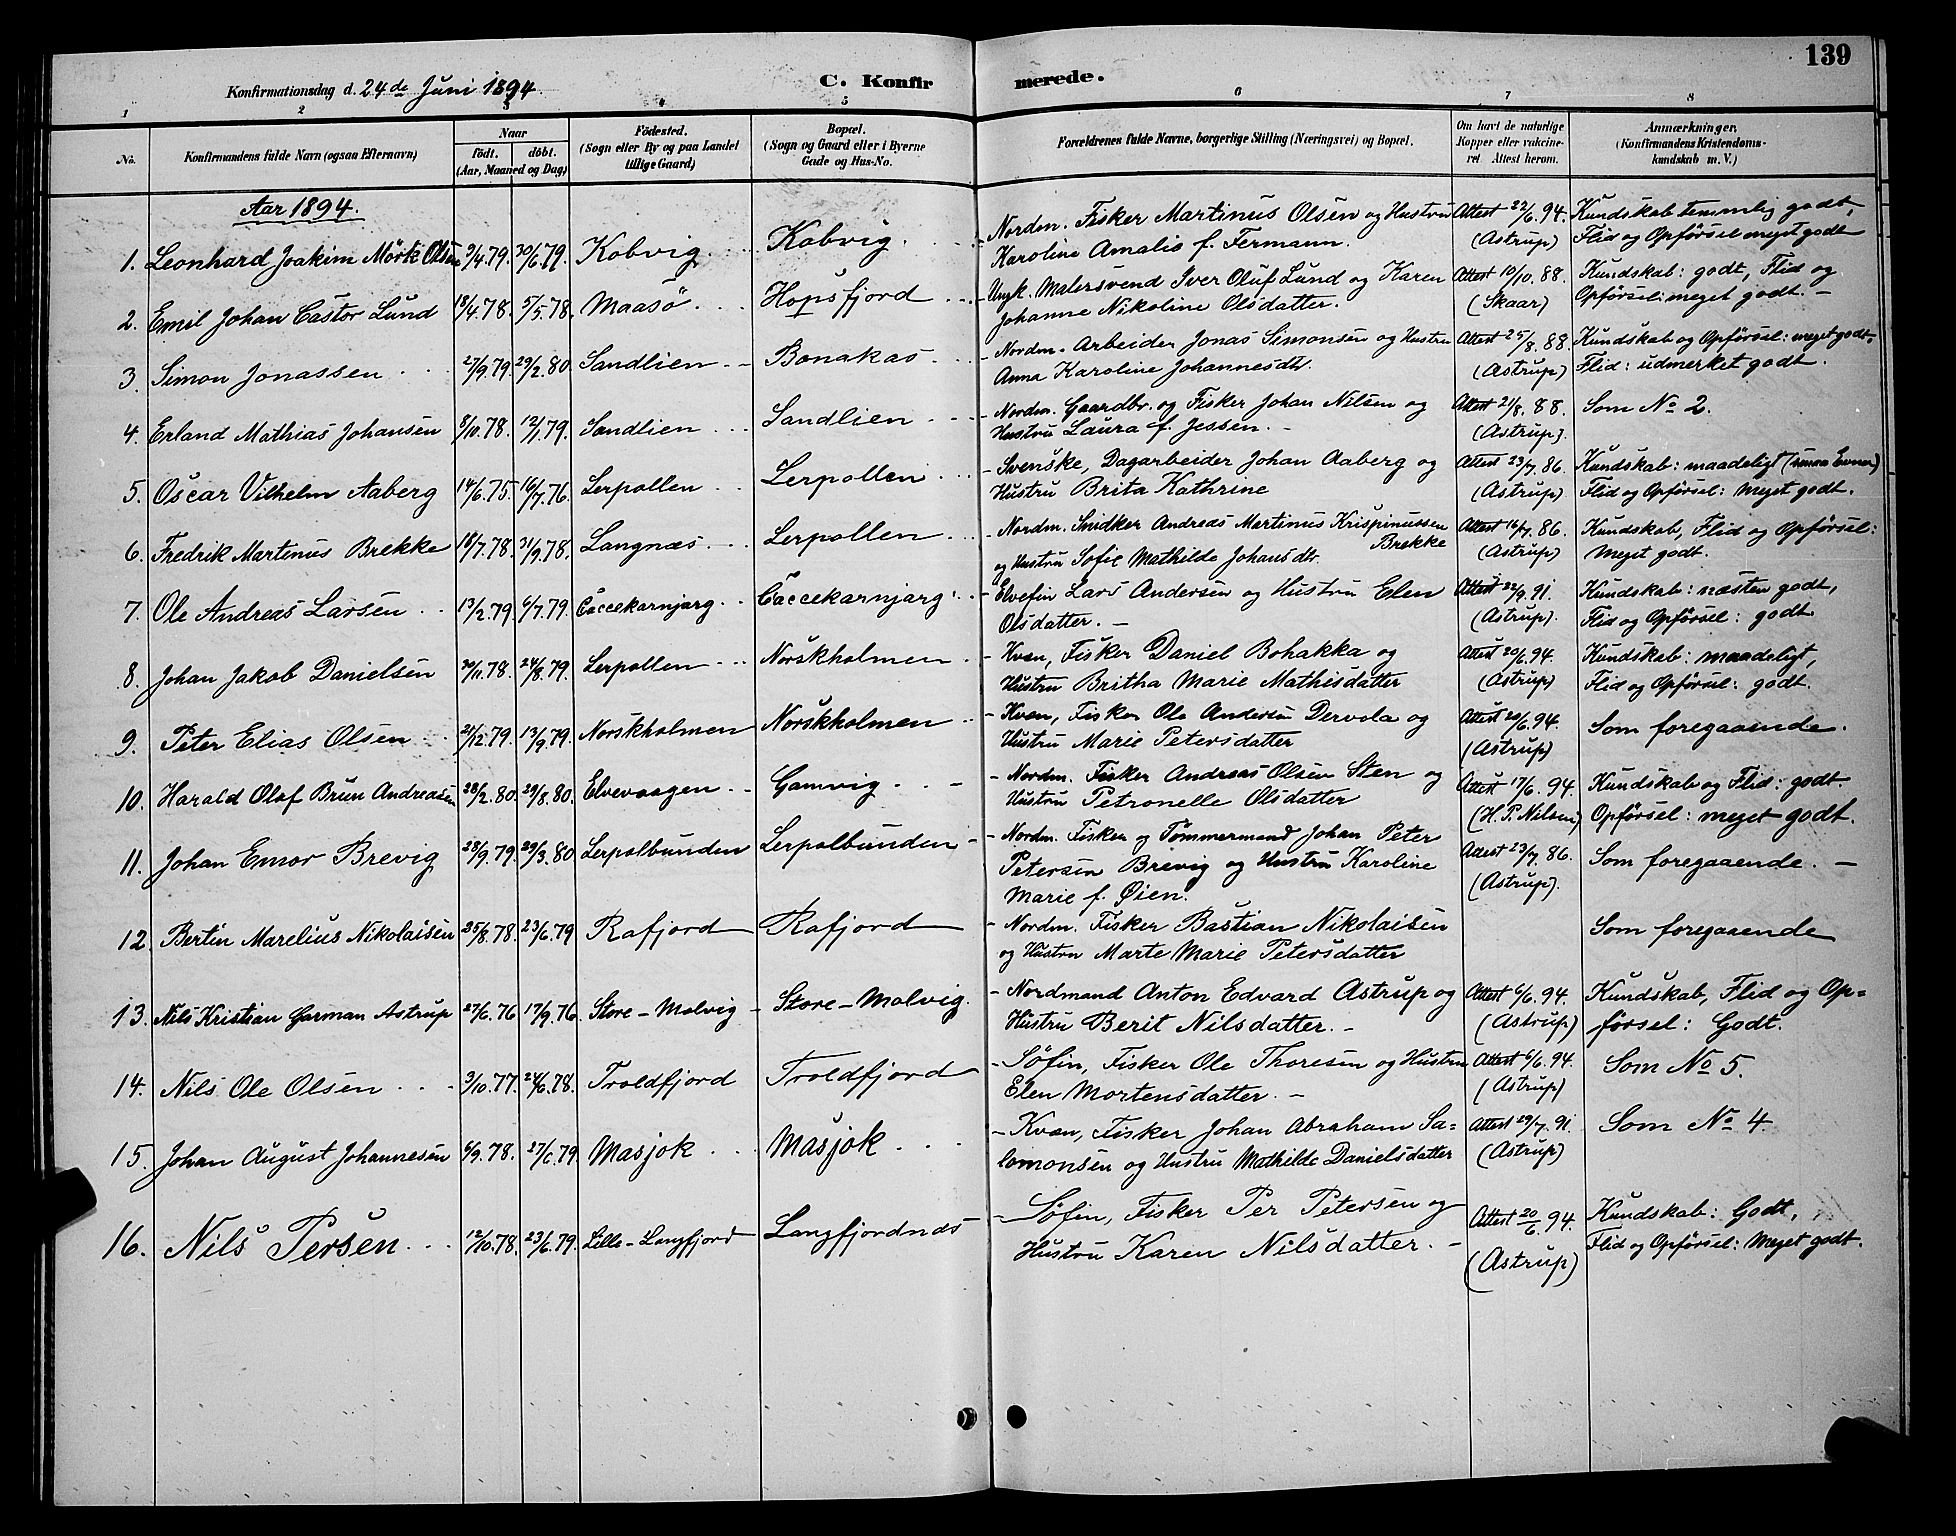 139
Konfirmationsdag d. 24de Juni 1894.
C. Konfirmerede.
1 2 3 4 5 6 7 8
No. Konfirmandens fulde Navn (ogsaa Efternavn) Naar födt. döbt. (Aar, Maaned og Dag) Födested. (Sogn eller By og paa Landet tillige Gaard) Bopæl. (Sogn og Gaard eller i Byerne Gade og Hus-No. Forældrenes fulde Navne, borgerlige Stilling (Næringsvei) og Bopæl. Om havt de naturlige Kopper eller vakcineret. Attest herom. Anmærkninger. (Konfirmandens Kristendomskundskab m. V.)
Aar 1894.
1. Leonhard Joakim Mörk Olsen 9/4.79. 30/6.79. Kobvig. Kobvig. Nordm. Fisker Martinus Olsen og Hustru Attest 22/6.94. Kundskab temmelig godt,
Karoline Amalie f. Fermann. (Astrup) Flid og Opförsel meget godt
2. Emil Johan Castor Lund 18/4.78. 5/5.78. Maasö Hopsfjord Ungk. Malersvend Iver Oluf Lund og Karen Attest 10/10.88. Kundskab: godt, Flid og
Johanne Nikoline Olsdatter. (Skaar) Opförsel: meget godt. –
3. Simon Jonassen 27/9.79. 29/2.80. Sandlien Bonakas – Nordm. Arbeider Jonas Simonsen og Hustru Attest 25/8.88. Kundskab og Opförsel: meget godt,
Anna Karoline Johannesdtr. (Astrup) Flid: udmerket godt.
4. Erland Mathias Johansen 8/10.78. 12/1.79. Sandlien Sandlien – Nordm. Gaardbr. og Fisker Johan Nilsen og Attest 21/8.88. Som No 2.
Hustru Laura f. Jessen. – (Astrup).
5. Oscar Vilhelm Aaberg 14/6.75. 16/7.76. Lerpollen Lerpollen – Svenske, Dagarbeider Johan Aaberg og Attest 23/7.86. Kundskab: maadeligt (smaa Evner)
Hustru Brita Kathrine (Astrup) Flid og Opförsel: Meget godt.
6. Fredrik Martinus Brekke 18/7.78. 21/9.78. Langnæs Lerpollen – Nordm. Snidker Andreas Martinus Krispinussen Attest 16/7.86. Kundskab, Flid og Opförsel:
Brekke
og Hustru Sofie Mathilde Johansdtr. (Astrup) Meget godt.
7. Ole Andreas Larsen 13/2.79. 6/7.79. Caccekarnjarg Caccekarnjarg – Elvefin Lars Andersen og Hustru Elen Attest 22/9.91. Kundskab: næsten godt,
Olsdatter. – (Astrup). Flid og Opförsel: godt.
8. Johan Jakob Danielsen 20/11.78. 24/8.79. Lerpollen Norskholmen – Kvæn, Fisker Daniel Bohakka og Attest 20/6.94. Kundskab: maadeligt,
Hustru Britha Marie Mathisdatter (Astrup) Flid og Opförsel: godt.
9. Peter Elias Olsen 21/12.79. 13/9.79. Norskholmen Norskholmen – Kvæn, Fisker Ole Andersen Dervola og Attest 20/6.94. Som foregaaende.
Hustru Marie Petersdatter (Astrup)
10. Harald Olaf Brun Andreasen 28/2.80. 29/8.80. Elvevaagen Gamvig – Nordm. Fisker Andreas Olsen Sten og Attest 17/6.94. Kundskab og Flid: godt.
Hustru Petronelle Olsdatter (H. P. Nilsen) Opförsel: meget godt.
11. Johan Emor Brevig 28/9.79. 29/3.80 Lerpolbunden Lerpolbunden – Nordm. Fisker og Tömmermand Johan Peter Attest 23/7.86. Som foregaaende. –
Petersen Brevig og Hustru Karoline (Astrup).
Marie f. Øien.
12. Bertin Marelius Nikolaisen 25/8.78. 23/6.79 Rafjord Rafjord – Nordm. Fisker Bastian Nikolaisen Som foregaaende
og Hustru Marte Marie Petersdatter
13. Nils Kristian Garman Astrup 27/6.76 17/9.76. Store-Molvig Store-Molvig. – Nordmand Anton Edvard Astrup og Attest 6/6.94. Kundskab, Flid og Op=
Hustru Berit Nilsdatter. – (Astrup) försel: Godt.
14. Nils Ole Olsen 3/10.77. 24/6.78. Troldfjord Troldfjord – Söfin, Fisker Ole Thoresen og Hustru Attest 6/6.94. Som No 5.
Elen Mortensdatter. – (Astrup)
15. Johan August Johannesen 6/9.78. 27/6.79. Masjok Masjok – Kvæn, Fisker Johan Abraham Sa= Attest 29/7.91. Som No 4
lomonsen og Hustru Mathilde Danielsdatter (Astrup)
16. Nils Persen 12/10.78. 23/6.79. Lille-Langfjord Langfjordnæs – Söfin, Fisker Per Petersen og Attest 20/6.94. Kundskab: Godt,
Hustru Karen Nilsdatter. – (Astrup) Flid og Opförsel: Meget godt.